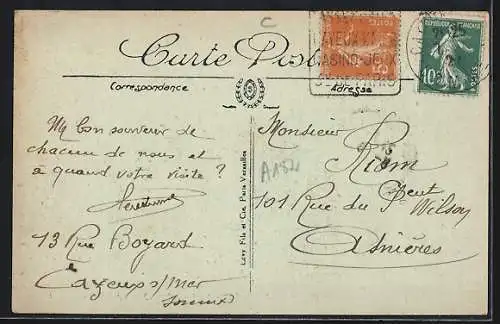 C
Carte Postale
Correspondance
Adresse
CAYEUX S/
CASINO - JEUX
RÉPUBLIQUE FRANÇAISE
10
POSTES
Un bon souvenir de
chacun de nous et
à quand votre visite ?
13 Rue Boyard
Cayeux s/mer
Somme
Levy Fils et Cie, Paris-Versailles
A182
Monsieur
Riom
101 Rue du Pt Wilson
Asnières